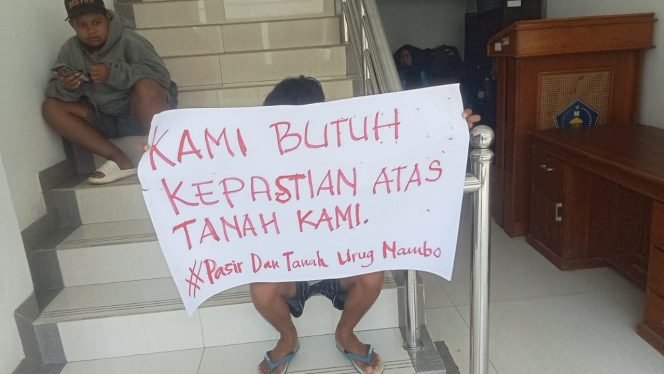 KAMI BUTUH
KEPASTIAN ATAS
TANAH KAMI.
#Pasir Dan Tanah Urug Nambo